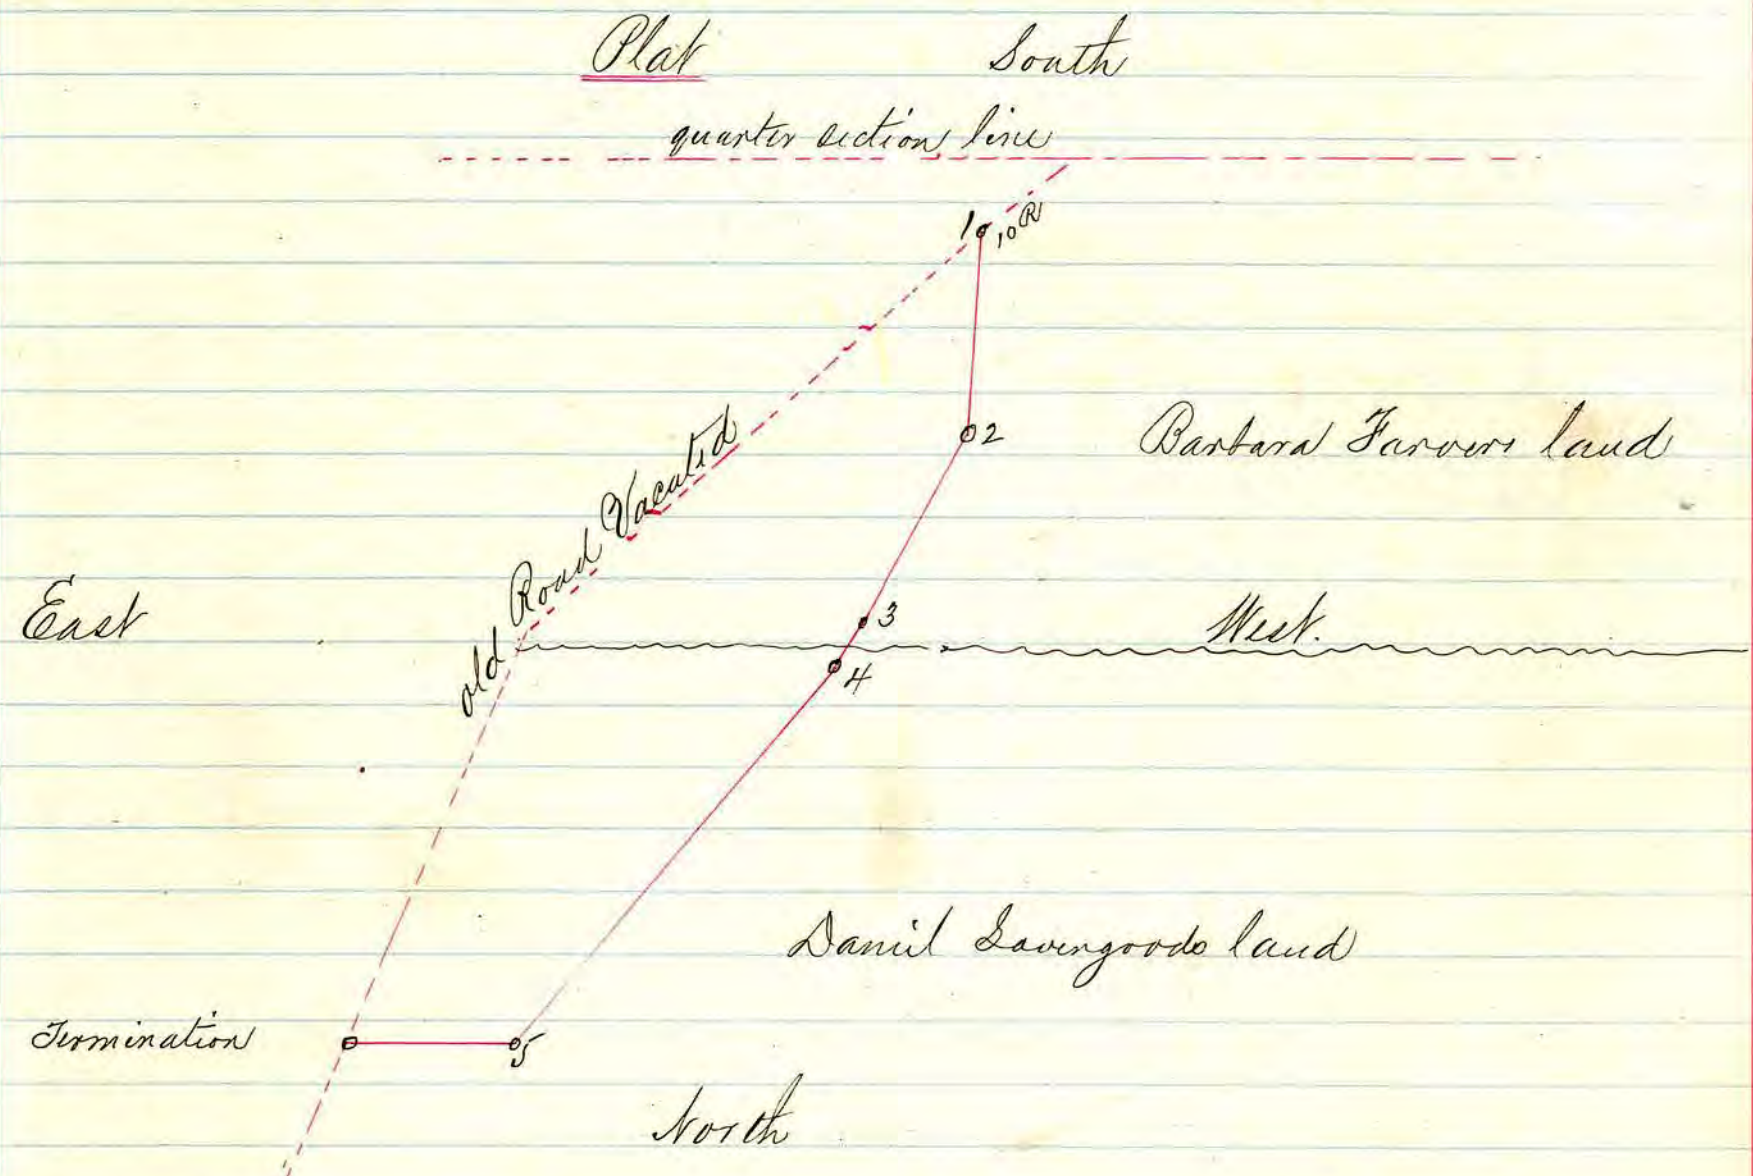 Plat South
quarter section line
1 10R
2
Barbara Farvers land
old Road Vacated
East
3
West.
4
Daniel Lavengoods land
Termination
5
North